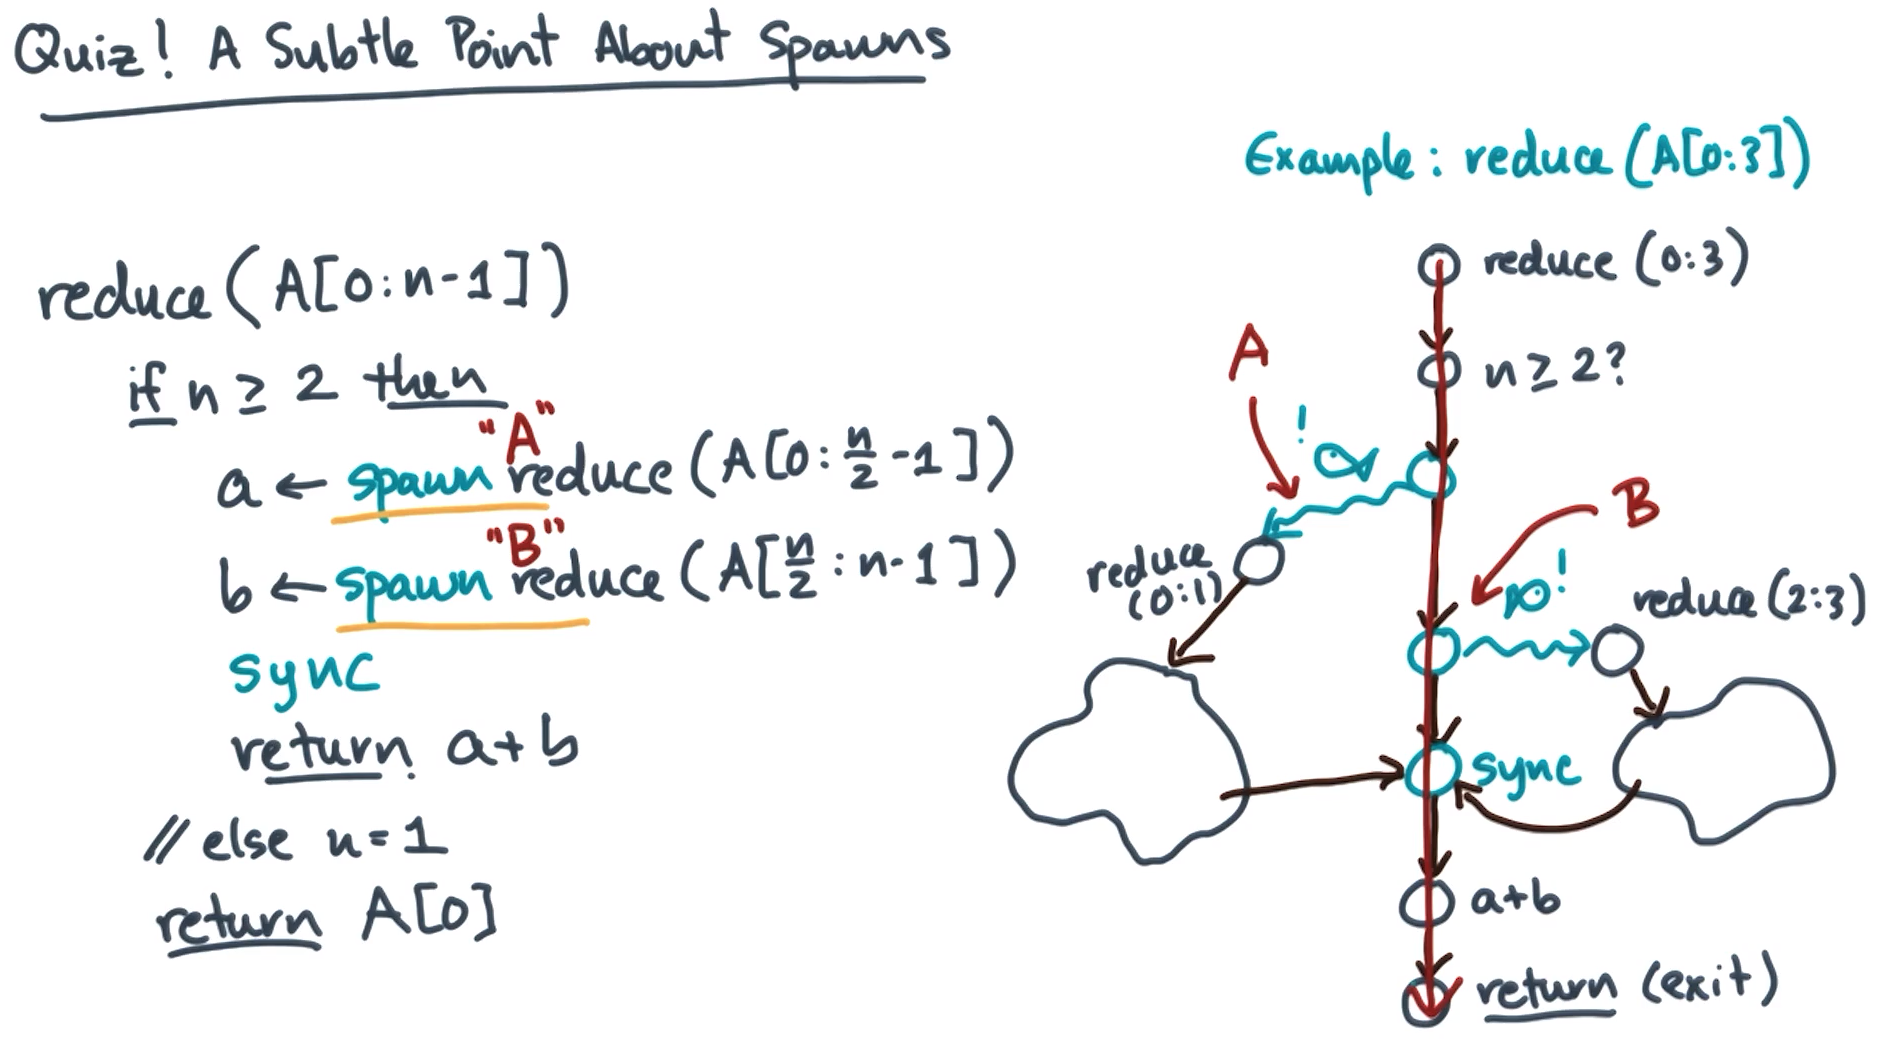 Quiz! A Subtle Point About Spawns
reduce (A[0:n-1])
if n ≥ 2 then
"A"
a ← spawn reduce (A[0:n/2-1])
"B"
b ← spawn reduce (A[n/2:n-1])
sync
return a+b
// else n=1
return A[0]
Example: reduce (A[0:3])
reduce (0:3)
n ≥ 2?
A
!
B
!
reduce
(0:1)
reduce (2:3)
sync
a+b
return (exit)